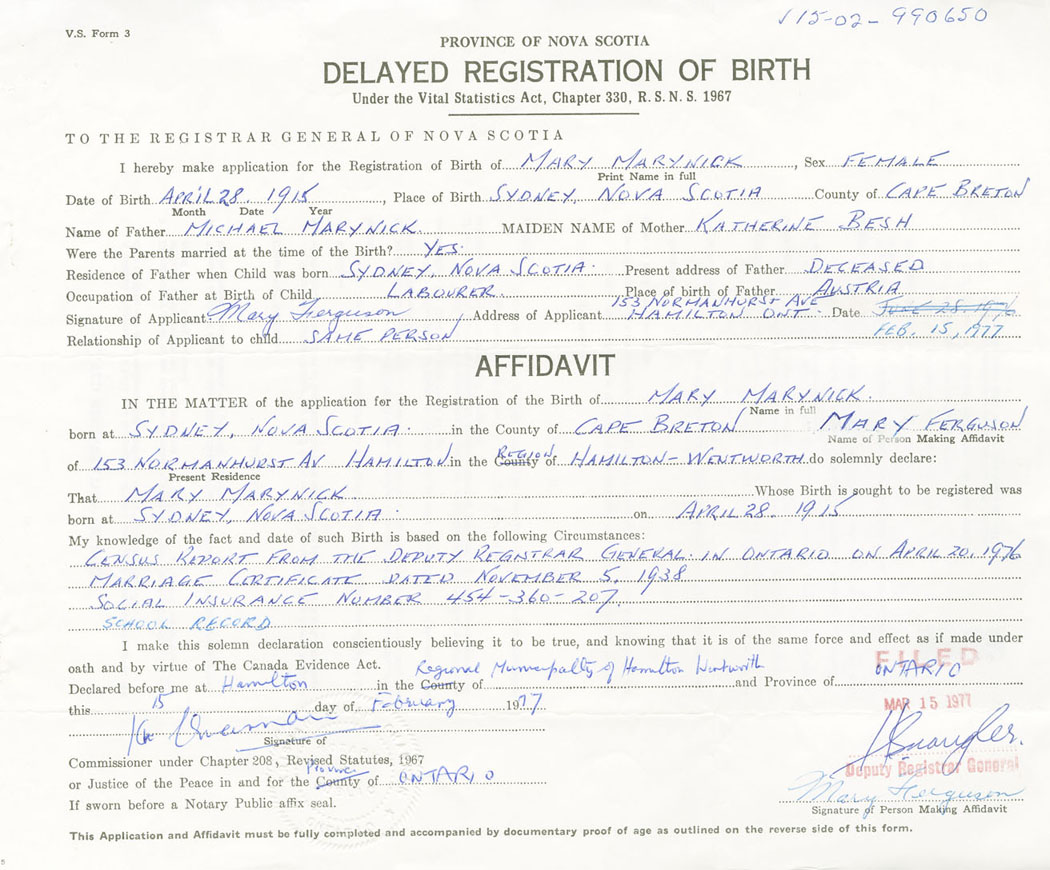 115-02-990650
V.S. Form 3
PROVINCE OF NOVA SCOTIA
DELAYED REGISTRATION OF BIRTH
Under the Vital Statistics Act, Chapter 330, R. S. N. S. 1967
TO THE REGISTRAR GENERAL OF NOVA SCOTIA
I hereby make application for the Registration of Birth of MARY MARYNICK, Sex FEMALE
Print Name in full
Date of Birth APRIL 28. 1915, Place of Birth SYDNEY, NOVA SCOTIA County of CAPE BRETON
Month Date Year
Name of Father MICHAEL MARYNICK. MAIDEN NAME of Mother KATHERINE BESH
Were the Parents married at the time of the Birth? YES.
Residence of Father when Child was born SYDNEY, NOVA SCOTIA. Present address of Father DECEASED
Occupation of Father at Birth of Child LABOURER. Place of birth of Father AUSTRIA
153 NORMANHURST AVE
Signature of Applicant Mary Ferguson, Address of Applicant HAMILTON ONT. Date JUNE 28. 1976
FEB. 15, 1977
Relationship of Applicant to child SAME PERSON
AFFIDAVIT
IN THE MATTER of the application for the Registration of the Birth of MARY MARYNICK.
Name in full
born at SYDNEY, NOVA SCOTIA. in the County of CAPE BRETON MARY FERGUSON
Name of Person Making Affidavit
REGION
of 153 NORMANHURST AV HAMILTON in the County of HAMILTON-WENTWORTH do solemnly declare:
Present Residence
That MARY MARYNICK Whose Birth is sought to be registered was
born at SYDNEY, NOVA SCOTIA. on APRIL 28. 1915
My knowledge of the fact and date of such Birth is based on the following Circumstances:
CENSUS REPORT FROM THE DEPUTY REGISTRAR GENERAL. IN ONTARIO ON APRIL 20, 1976
MARRIAGE CERTIFICATE DATED NOVEMBER 5, 1938
SOCIAL INSURANCE NUMBER 454-360-207
SCHOOL RECORD
I make this solemn declaration conscientiously believing it to be true, and knowing that it is of the same force and effect as if made under
oath and by virtue of The Canada Evidence Act. Regional Municipality of Hamilton Wentworth FILED
Declared before me at Hamilton in the County of and Province of ONTARIO
this 15 day of February 1977
MAR 15 1977
Signature of
Commissioner under Chapter 208, Revised Statutes, 1967
Province
or Justice of the Peace in and for the County of ONTARIO
Deputy Registrar General
If sworn before a Notary Public affix seal.
Mary Ferguson
Signature of Person Making Affidavit
This Application and Affidavit must be fully completed and accompanied by documentary proof of age as outlined on the reverse side of this form.